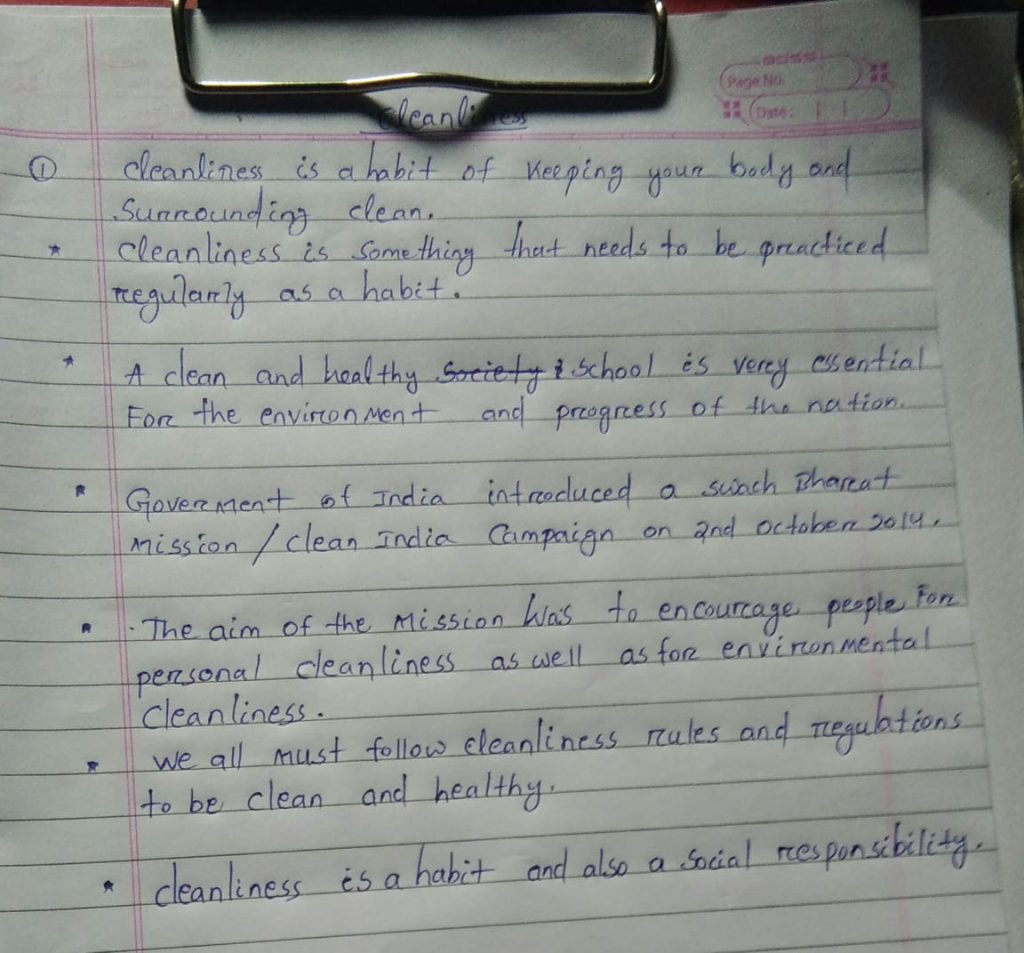 Page No.
Date:
Cleanliness
① cleanliness is a habit of Keeping your body and
Surrounding clean.
* Cleanliness is something that needs to be practiced
regularly as a habit.
* A clean and healthy Society & School is very essential
For the environment and progress of the nation.
* Goverment of India introduced a swach Bharat
Mission / clean India Campaign on 2nd October 2014.
* The aim of the Mission Was to encourage people For
personal cleanliness as well as for environmental
Cleanliness.
* We all must follow cleanliness rules and regulations
to be clean and healthy.
* cleanliness is a habit and also a social responsibility.